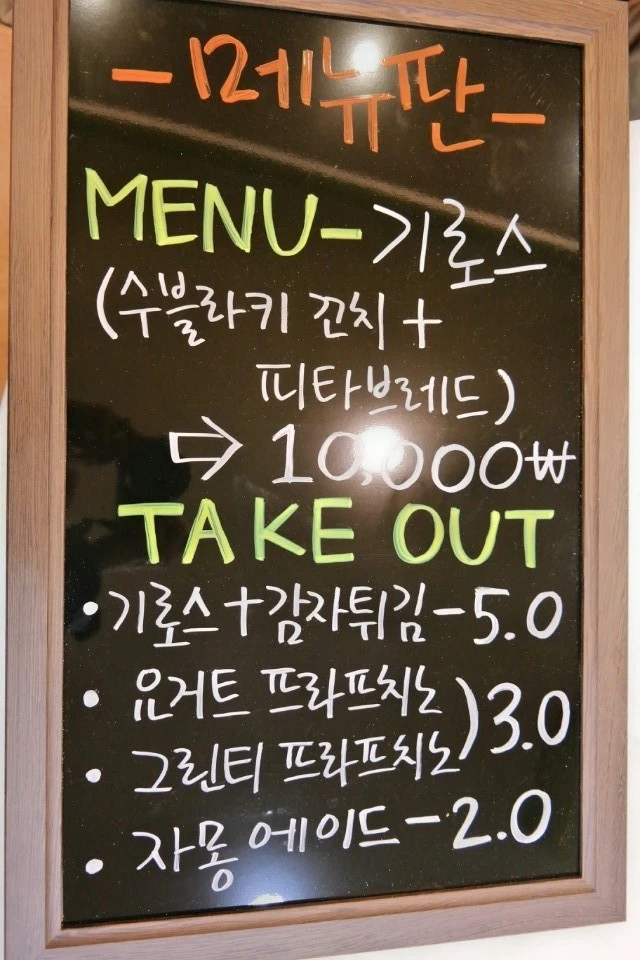 -메뉴판-
MENU-기로스
(수블라키 꼬치+
피타브레드)
⇨ 10,000₩
TAKE OUT
• 기로스+감자튀김-5.0
• 요거트 프라프치노
• 그린티 프라프치노 ) 3.0
• 자몽에이드-2.0